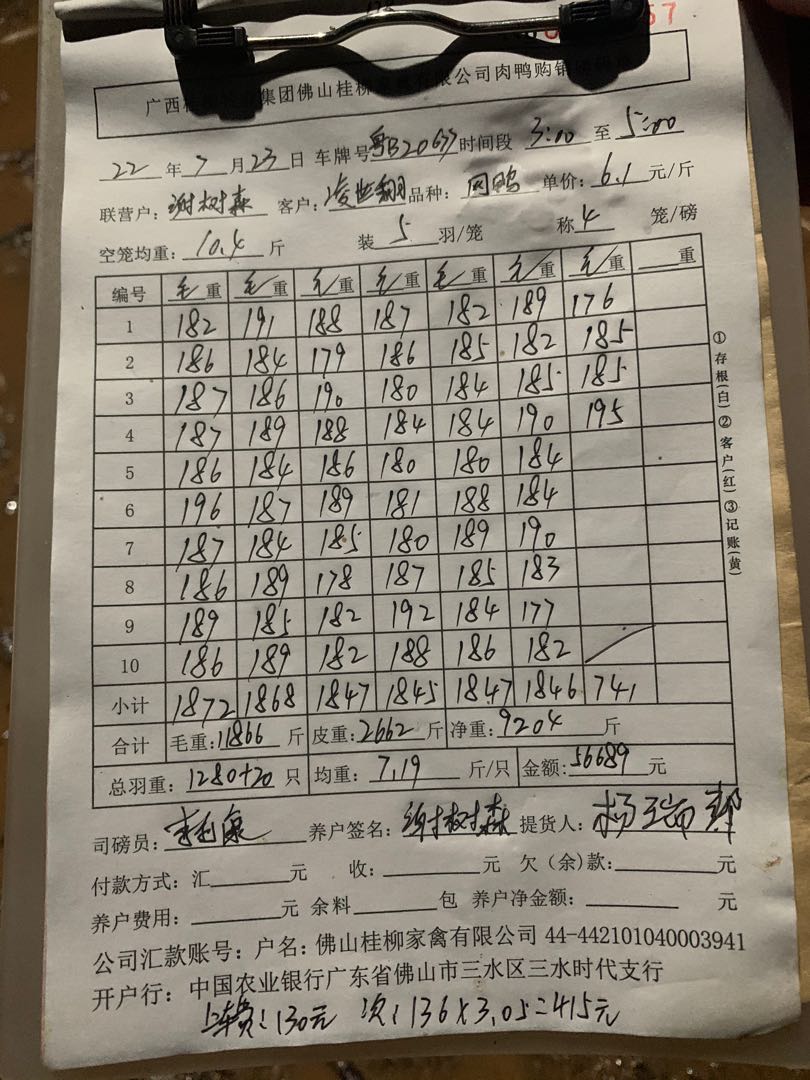 57
广西桂 集团佛山桂柳家禽有限公司肉鸭购销
22 年 7 月 23 日 车牌号 粤B20677 时间段 3:00 至 5:00
联营户: 谢树森 客户: 凌世翱 品种: 网鸭 单价: 6.1 元/斤
空笼均重: 10.4 斤 装 5 羽/笼 称 4 笼/磅
编号 毛重 毛重 毛重 毛重 毛重 毛重 毛重 重
1 182 191 188 187 182 189 176
2 186 184 179 186 185 182 185
3 187 186 190 180 184 185 185
4 187 189 188 184 184 190 195
5 186 184 186 180 180 184
6 196 187 189 181 188 184
7 187 184 185 180 189 190
8 186 189 178 187 185 183
9 189 185 182 192 184 177
10 186 189 182 188 186 182
小计 1872 1868 1847 1845 1847 1846 741
合计 毛重: 11866 斤 皮重: 2662 斤 净重: 9204 斤
总羽重: 1280+20 只 均重: 7.19 斤/只 金额: 56689 元
①存根(白)②客户(红)③记账(黄)
司磅员: 养户签名: 谢树森 提货人: 杨
付款方式: 汇 元 收: 元 欠(余)款: 元
养户费用: 元 余料 包 养户净金额: 元
公司汇款账号: 户名: 佛山桂柳家禽有限公司 44-442101040003941
开户行: 中国农业银行广东省佛山市三水区三水时代支行
上车费: 130元 次: 136×3.05=415元